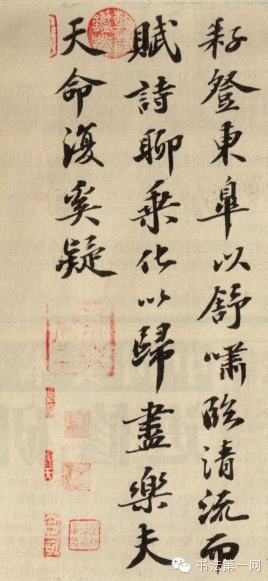 耔登東皋以舒嘯臨清流而
賦詩聊乗化以歸盡樂夫
天命復奚疑
书法第一网